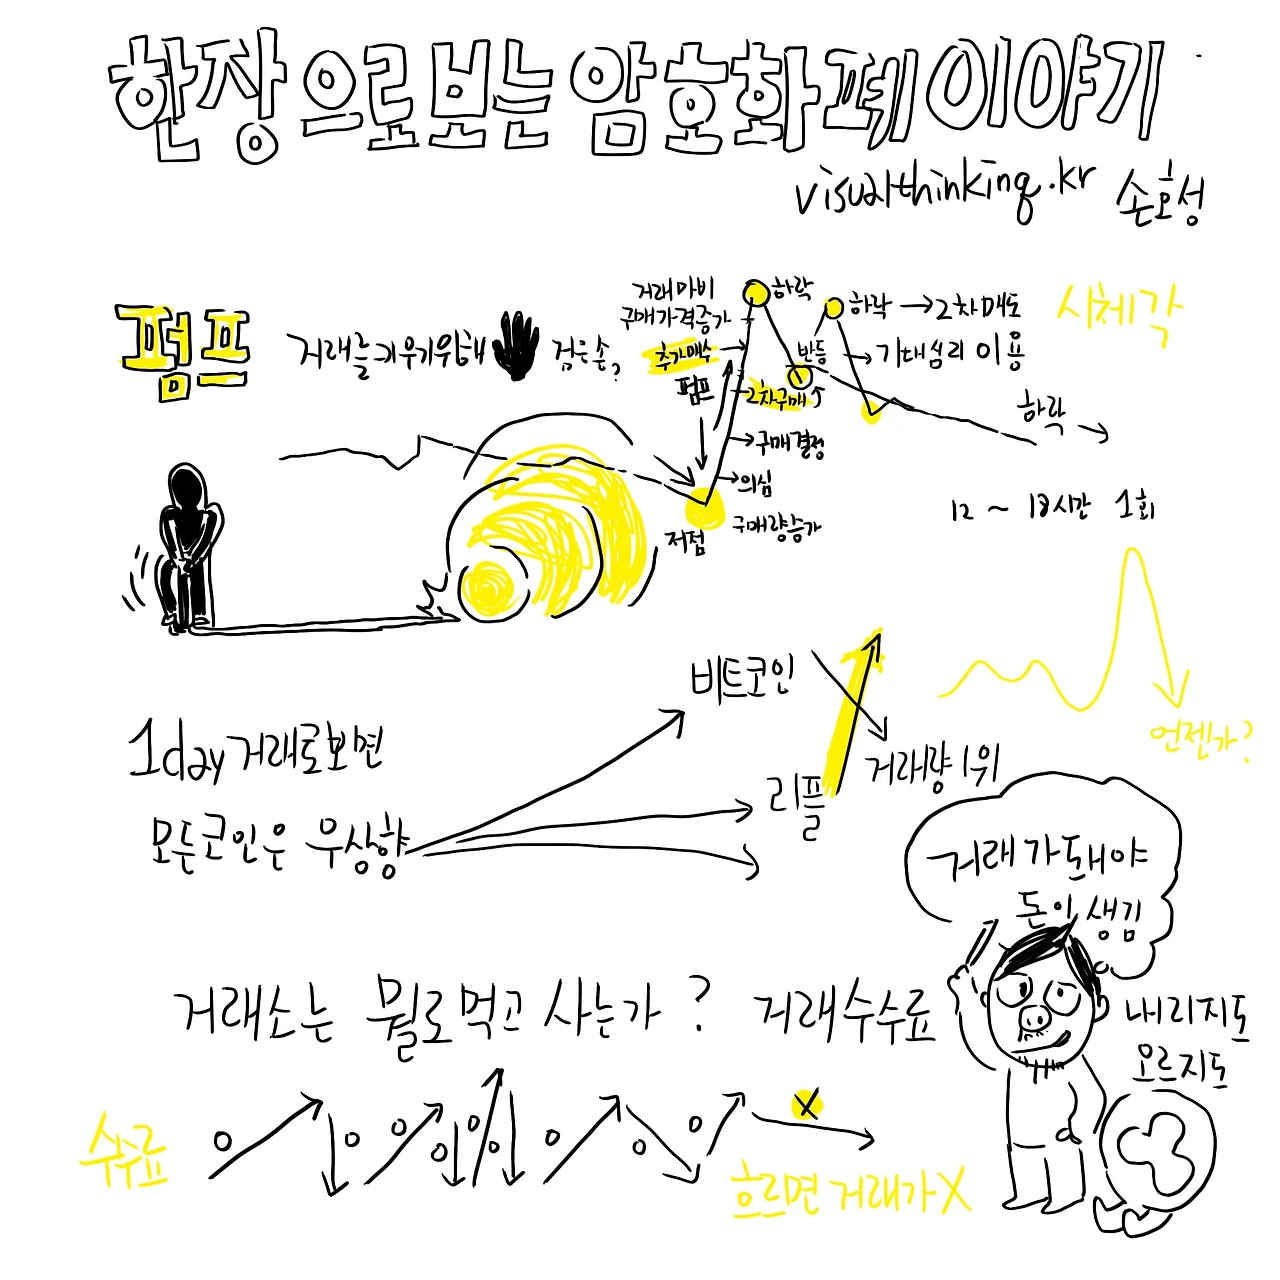 한장으로보는 암호화폐이야기
visualthinking.kr 손호성
펌프
거래를키우기위해 검은손?
거래마비
구매가격증가
추가매수
펌프
하락
반등
2차구매↑
구매결정
의심
구매량증가
저점
하락 → 2차매도
기대심리 이용
하락 →
시체각
12 ~ 18시간 1회
언젠가?
1day 거래로보면
모든코인은 우상향
비트코인
리플
거래량 1위
거래가돼야
돈이 생김
거래소는 뭘로먹고 사는가? 거래수수료
내리지도
오르지도
수수료
X
흐르면 거래가 X